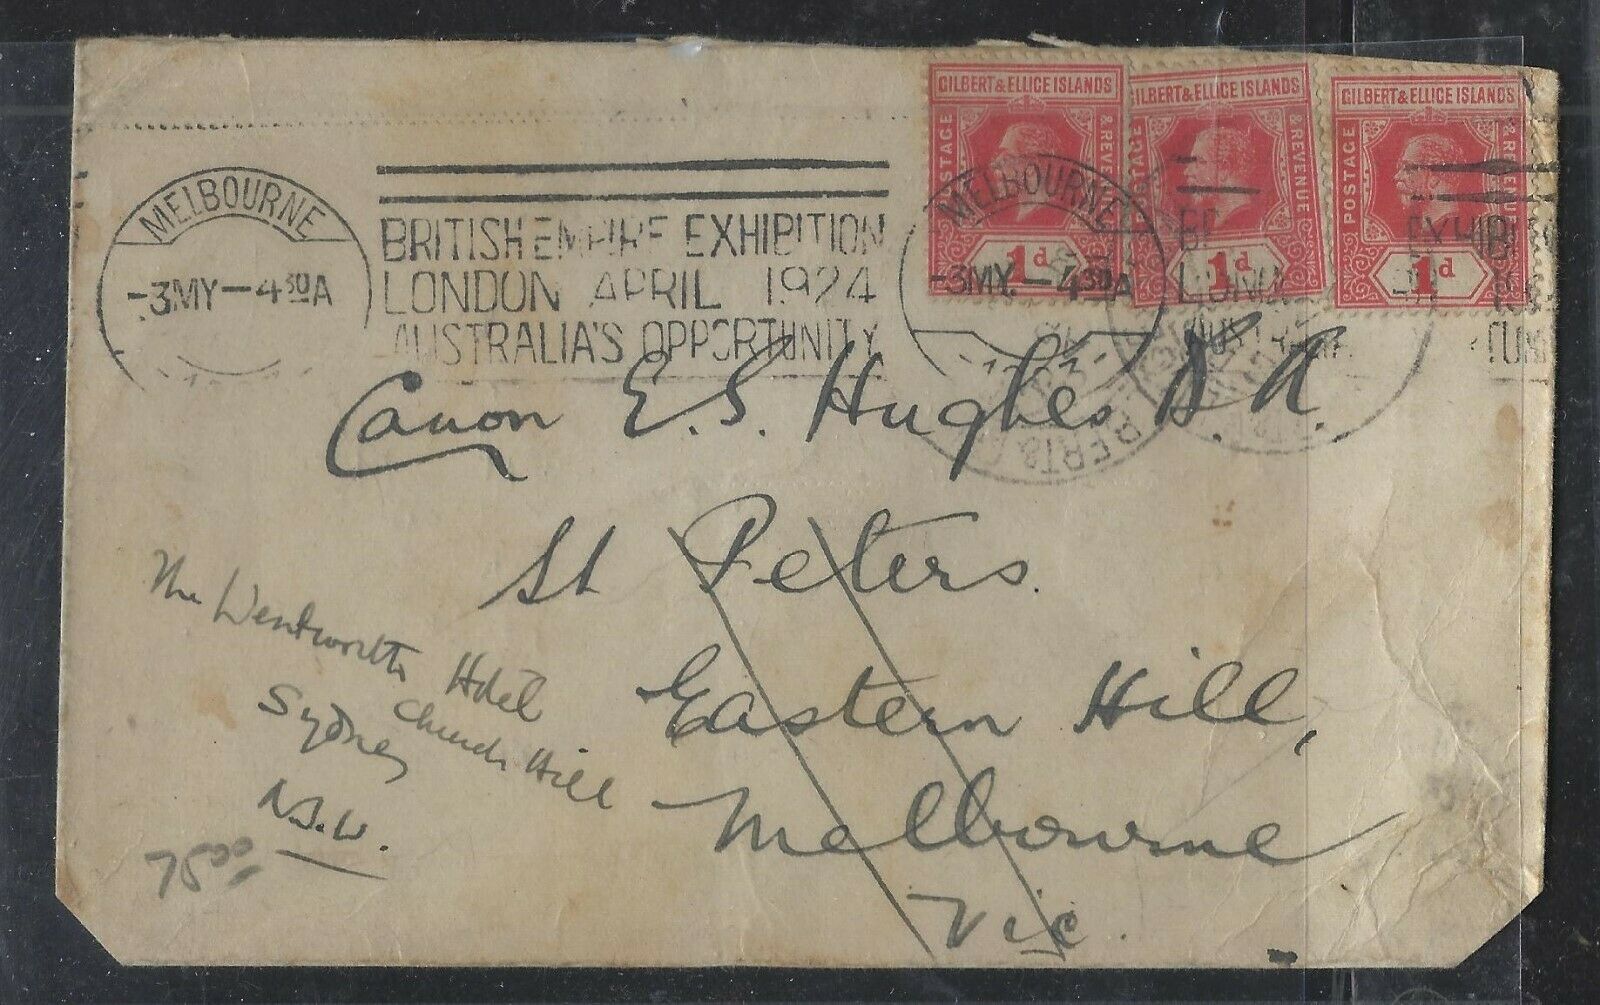 GILBERT & ELLICE ISLANDS
POSTAGE & REVENUE
1d
GILBERT & ELLICE ISLANDS
POSTAGE & REVENUE
1d
GILBERT & ELLICE ISLANDS
POSTAGE & REVENUE
1d
MELBOURNE
-3MY-430A
BRITISH EMPIRE EXHIBITION
LONDON APRIL 1924
AUSTRALIA'S OPPORTUNITY
MELBOURNE
-3MY-430A
EXHIBI
Canon E. S. Hughes
St Peters.
Eastern Hill,
Melbourne
Vic.
The Wentworth Hotel
Church Hill
Sydney
N.S.W.
75.00